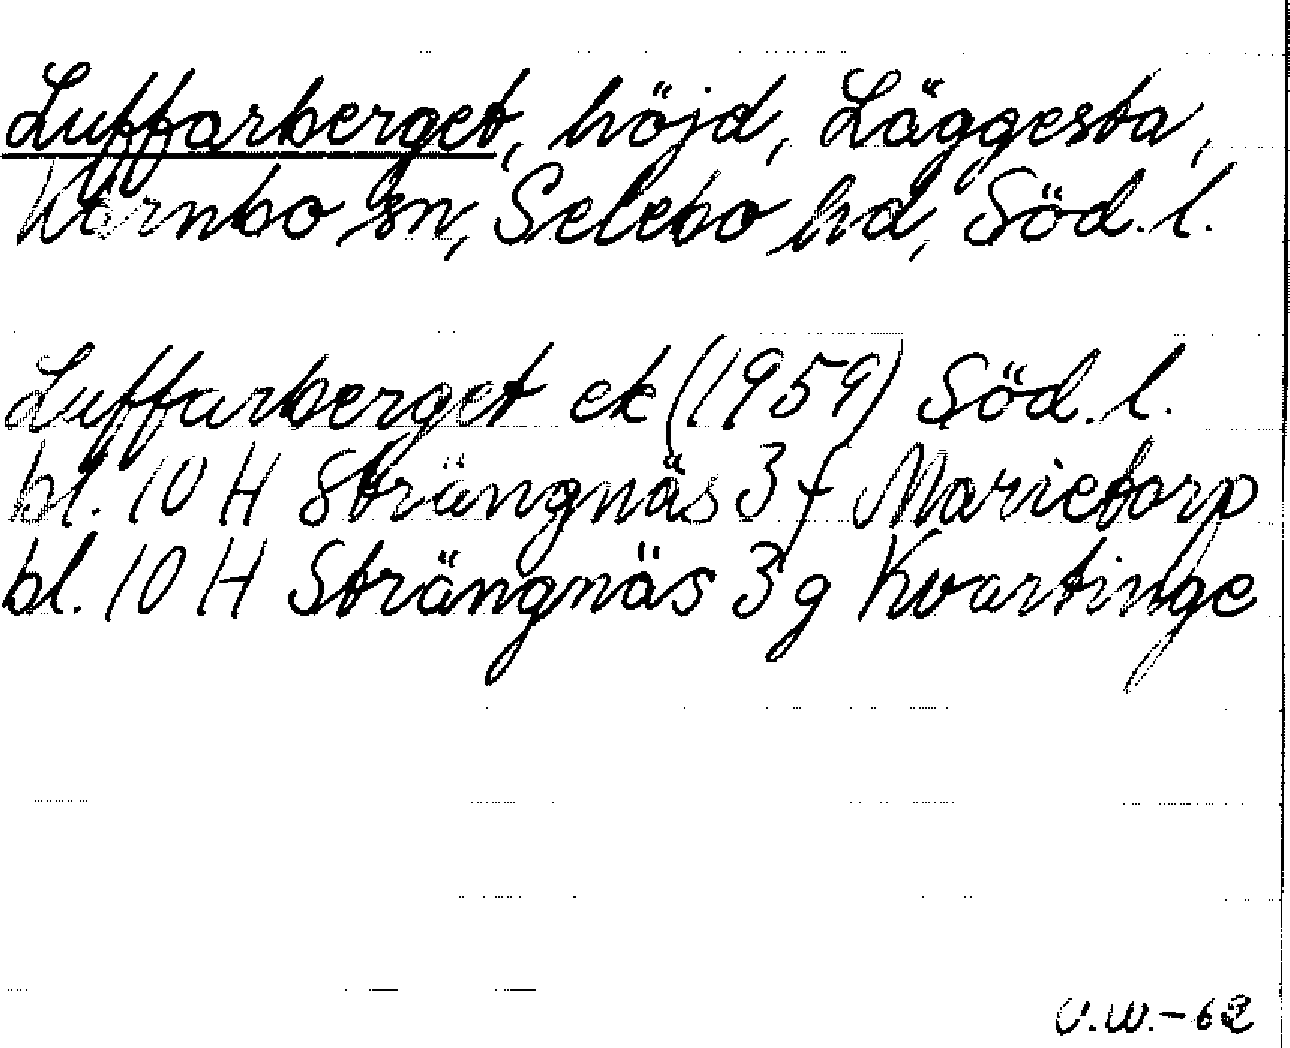 Luffarberget, höjd, Läggesta,
Kärnbo sn, Selebo hd, Söd.l.
Luffarberget ek (1959) Söd.l.
bl. 10 H Strängnäs 3 f Marietorp
bl. 10 H Strängnäs 3 g Kvartinge
U.W.-62